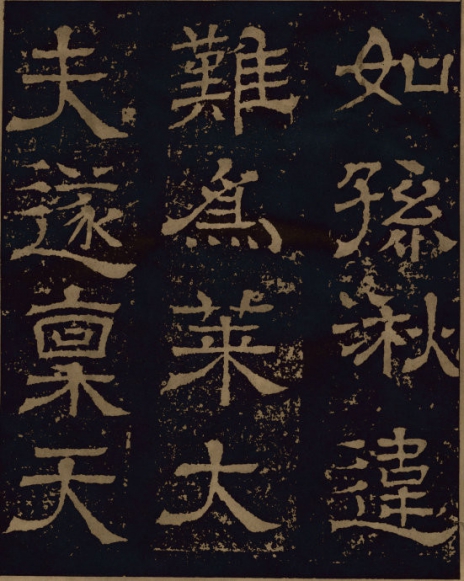 如孫湫違
難爲萊大
夫遂稟天